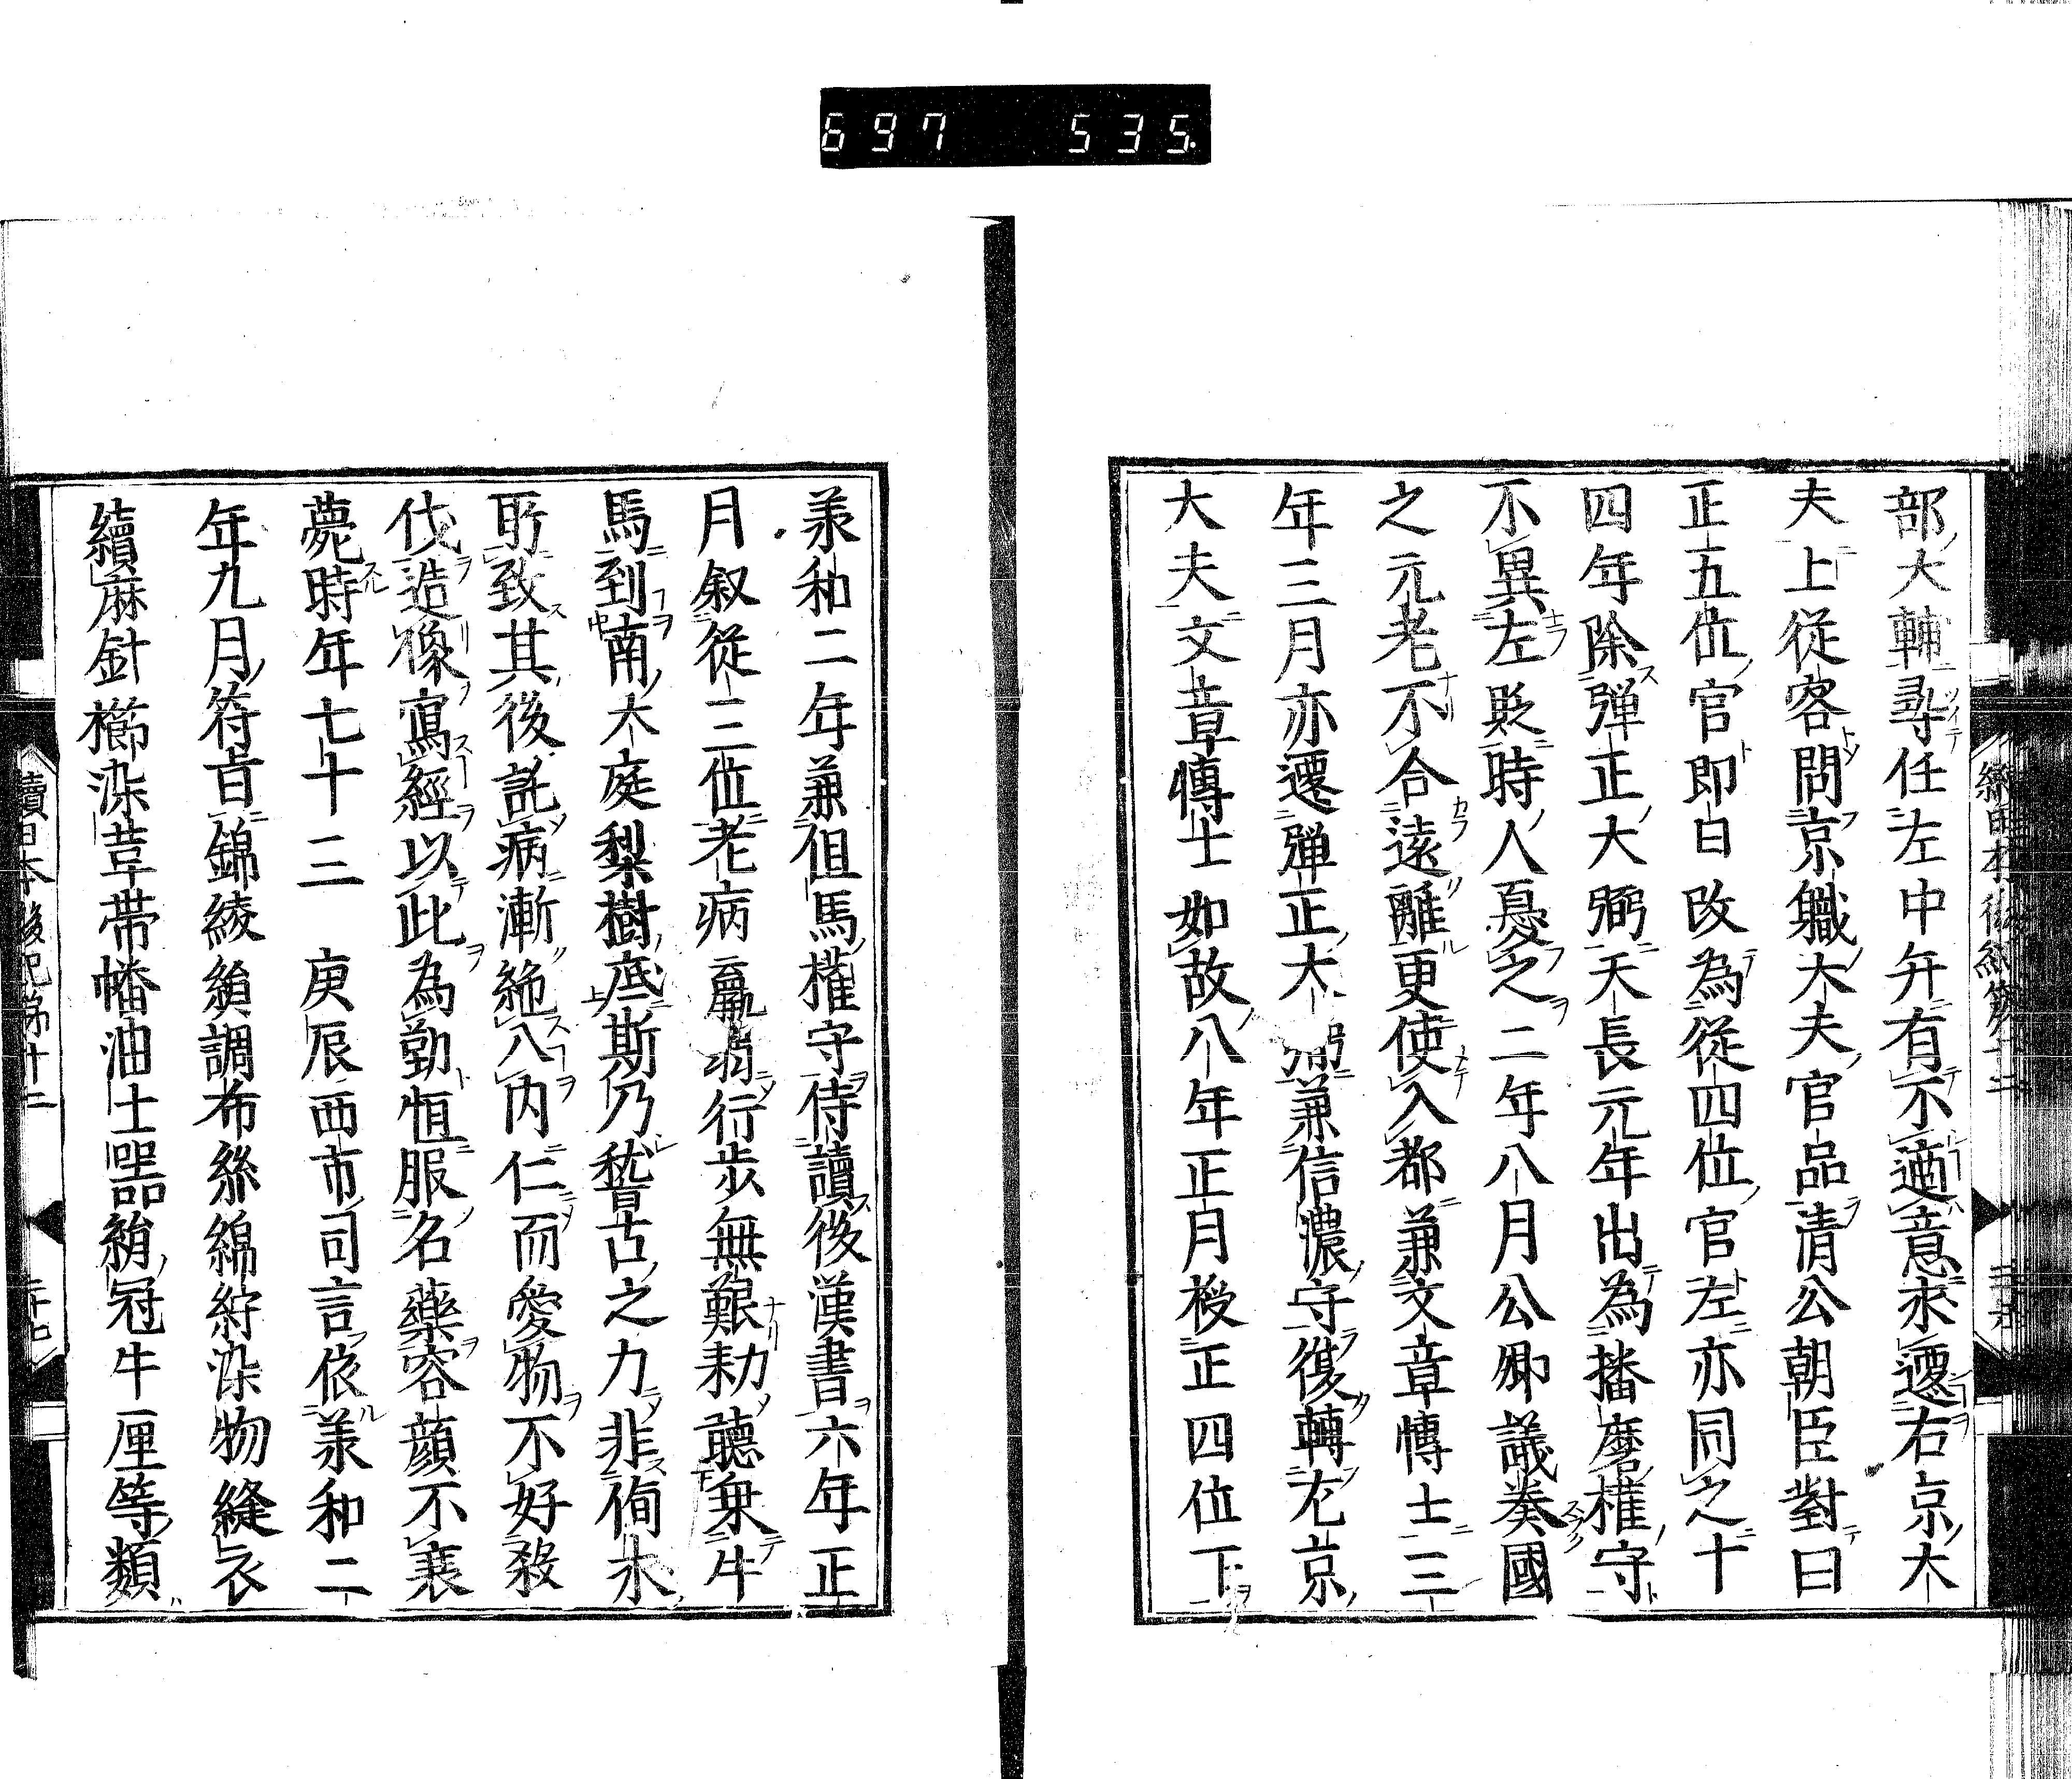 697 535
部大輔尋任左中弁有不適意求遷右京大
夫上從容問京職大夫官品清公朝臣對曰
正五位官即日改為從四位官左亦同之十
四年除彈正大弼天長元年出為播磨權守
不異左貶時人憂之二年八月公卿議奏國
之元老不合遠離更使入都兼文章博士三
年三月亦遷彈正大弼兼信濃守復轉左京
大夫文章博士如故八年正月授正四位下
羕和二年兼但馬權守侍讀後漢書六年正
月叙從三位老病羸弱行步無艱勑聽乗牛
車到南大庭梨樹底斯乃稽古之力非徇求
所致其後託病漸絶入内仁而愛物不好殺
伐造像寫經以此為勤恒服名藥容顔不衰
薨時年七十三　庚辰西市司言依羕和二
年九月符旨錦綾纈調布絲綿紵染物縫衣
續麻針櫛染韋帶幡油土器絹冠牛厘等類
續日本後紀第十二